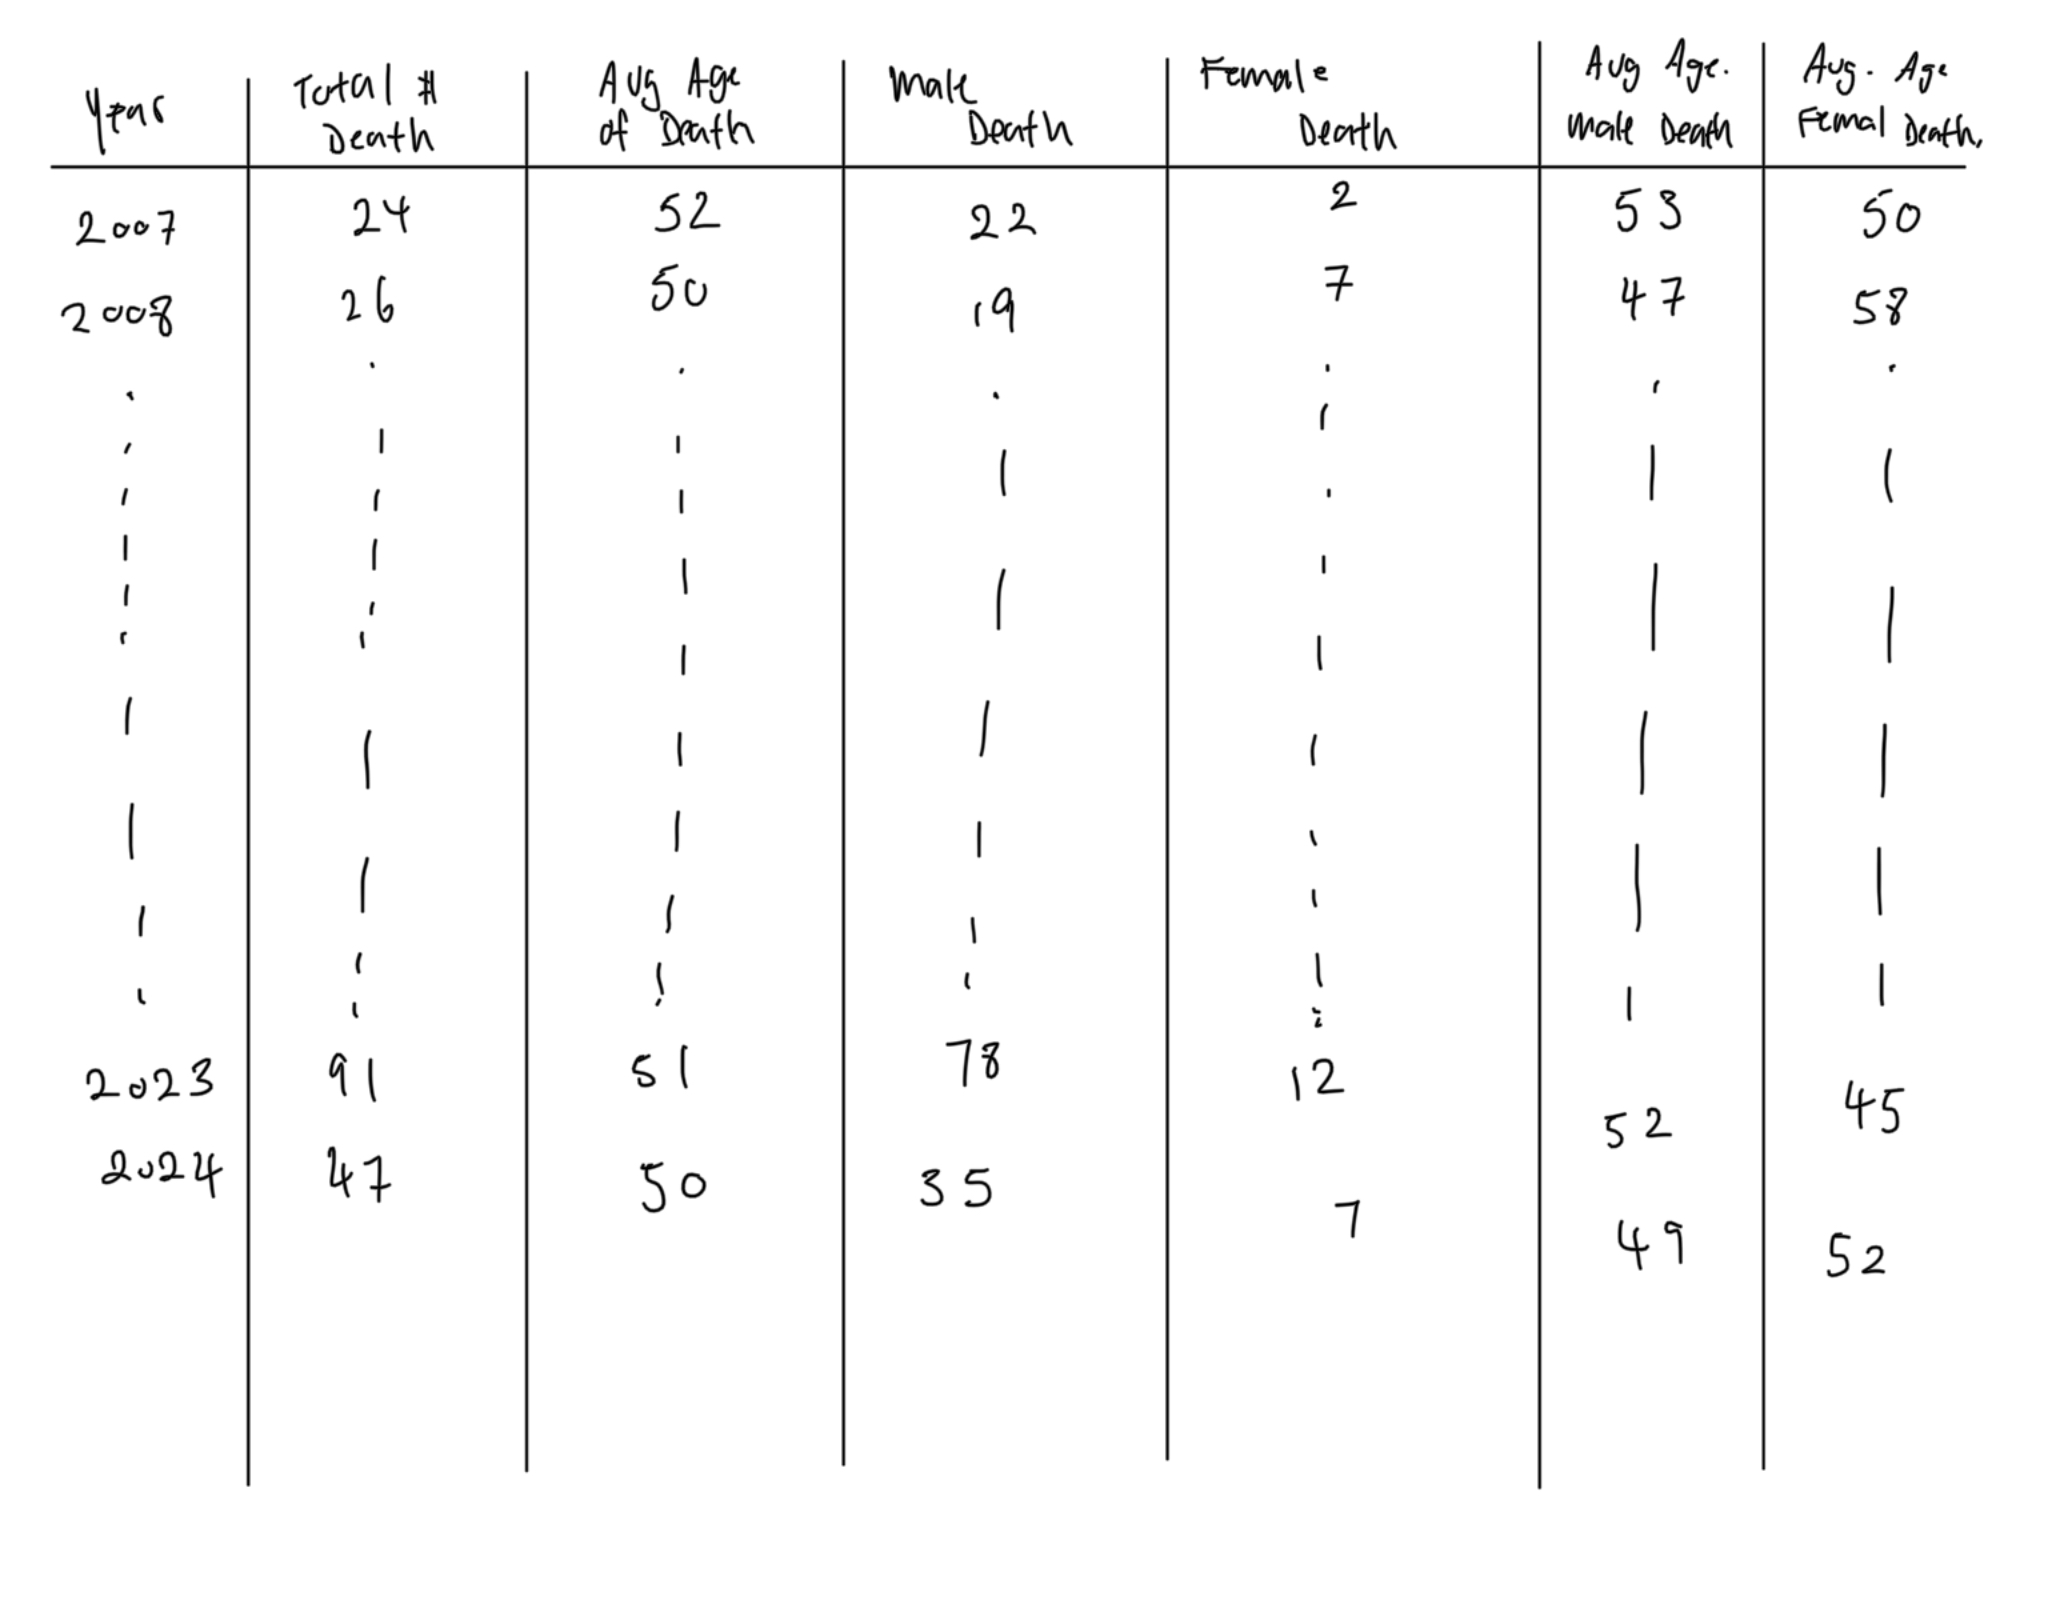 Year Total # Death Avg Age of Death Male Death Female Death Avg Age. Male Death Avg. Age Femal Death.
2007 24 52 22 2 53 50
2008 26 50 19 7 47 58
2023 91 51 78 12 52 45
2024 47 50 35 7 49 52